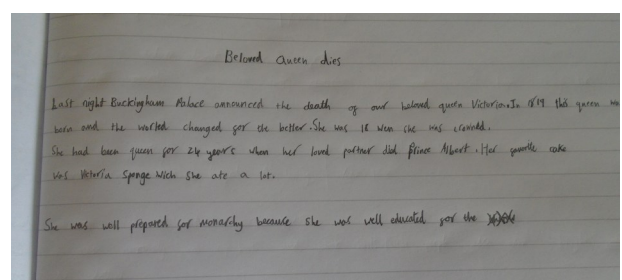 Beloved Queen dies
Last night Buckingham Palace announced the death of our beloved queen Victoria. In 1819 this queen wa
born and the worled changed for the better. She was 18 wen she was crowned.
She had been queen for 24 years when her loved partner did Prince Albert. Her favorite cake
was Victoria Sponge wich she ate a lot.
She was well prepared for monarchy because she was well educated for the